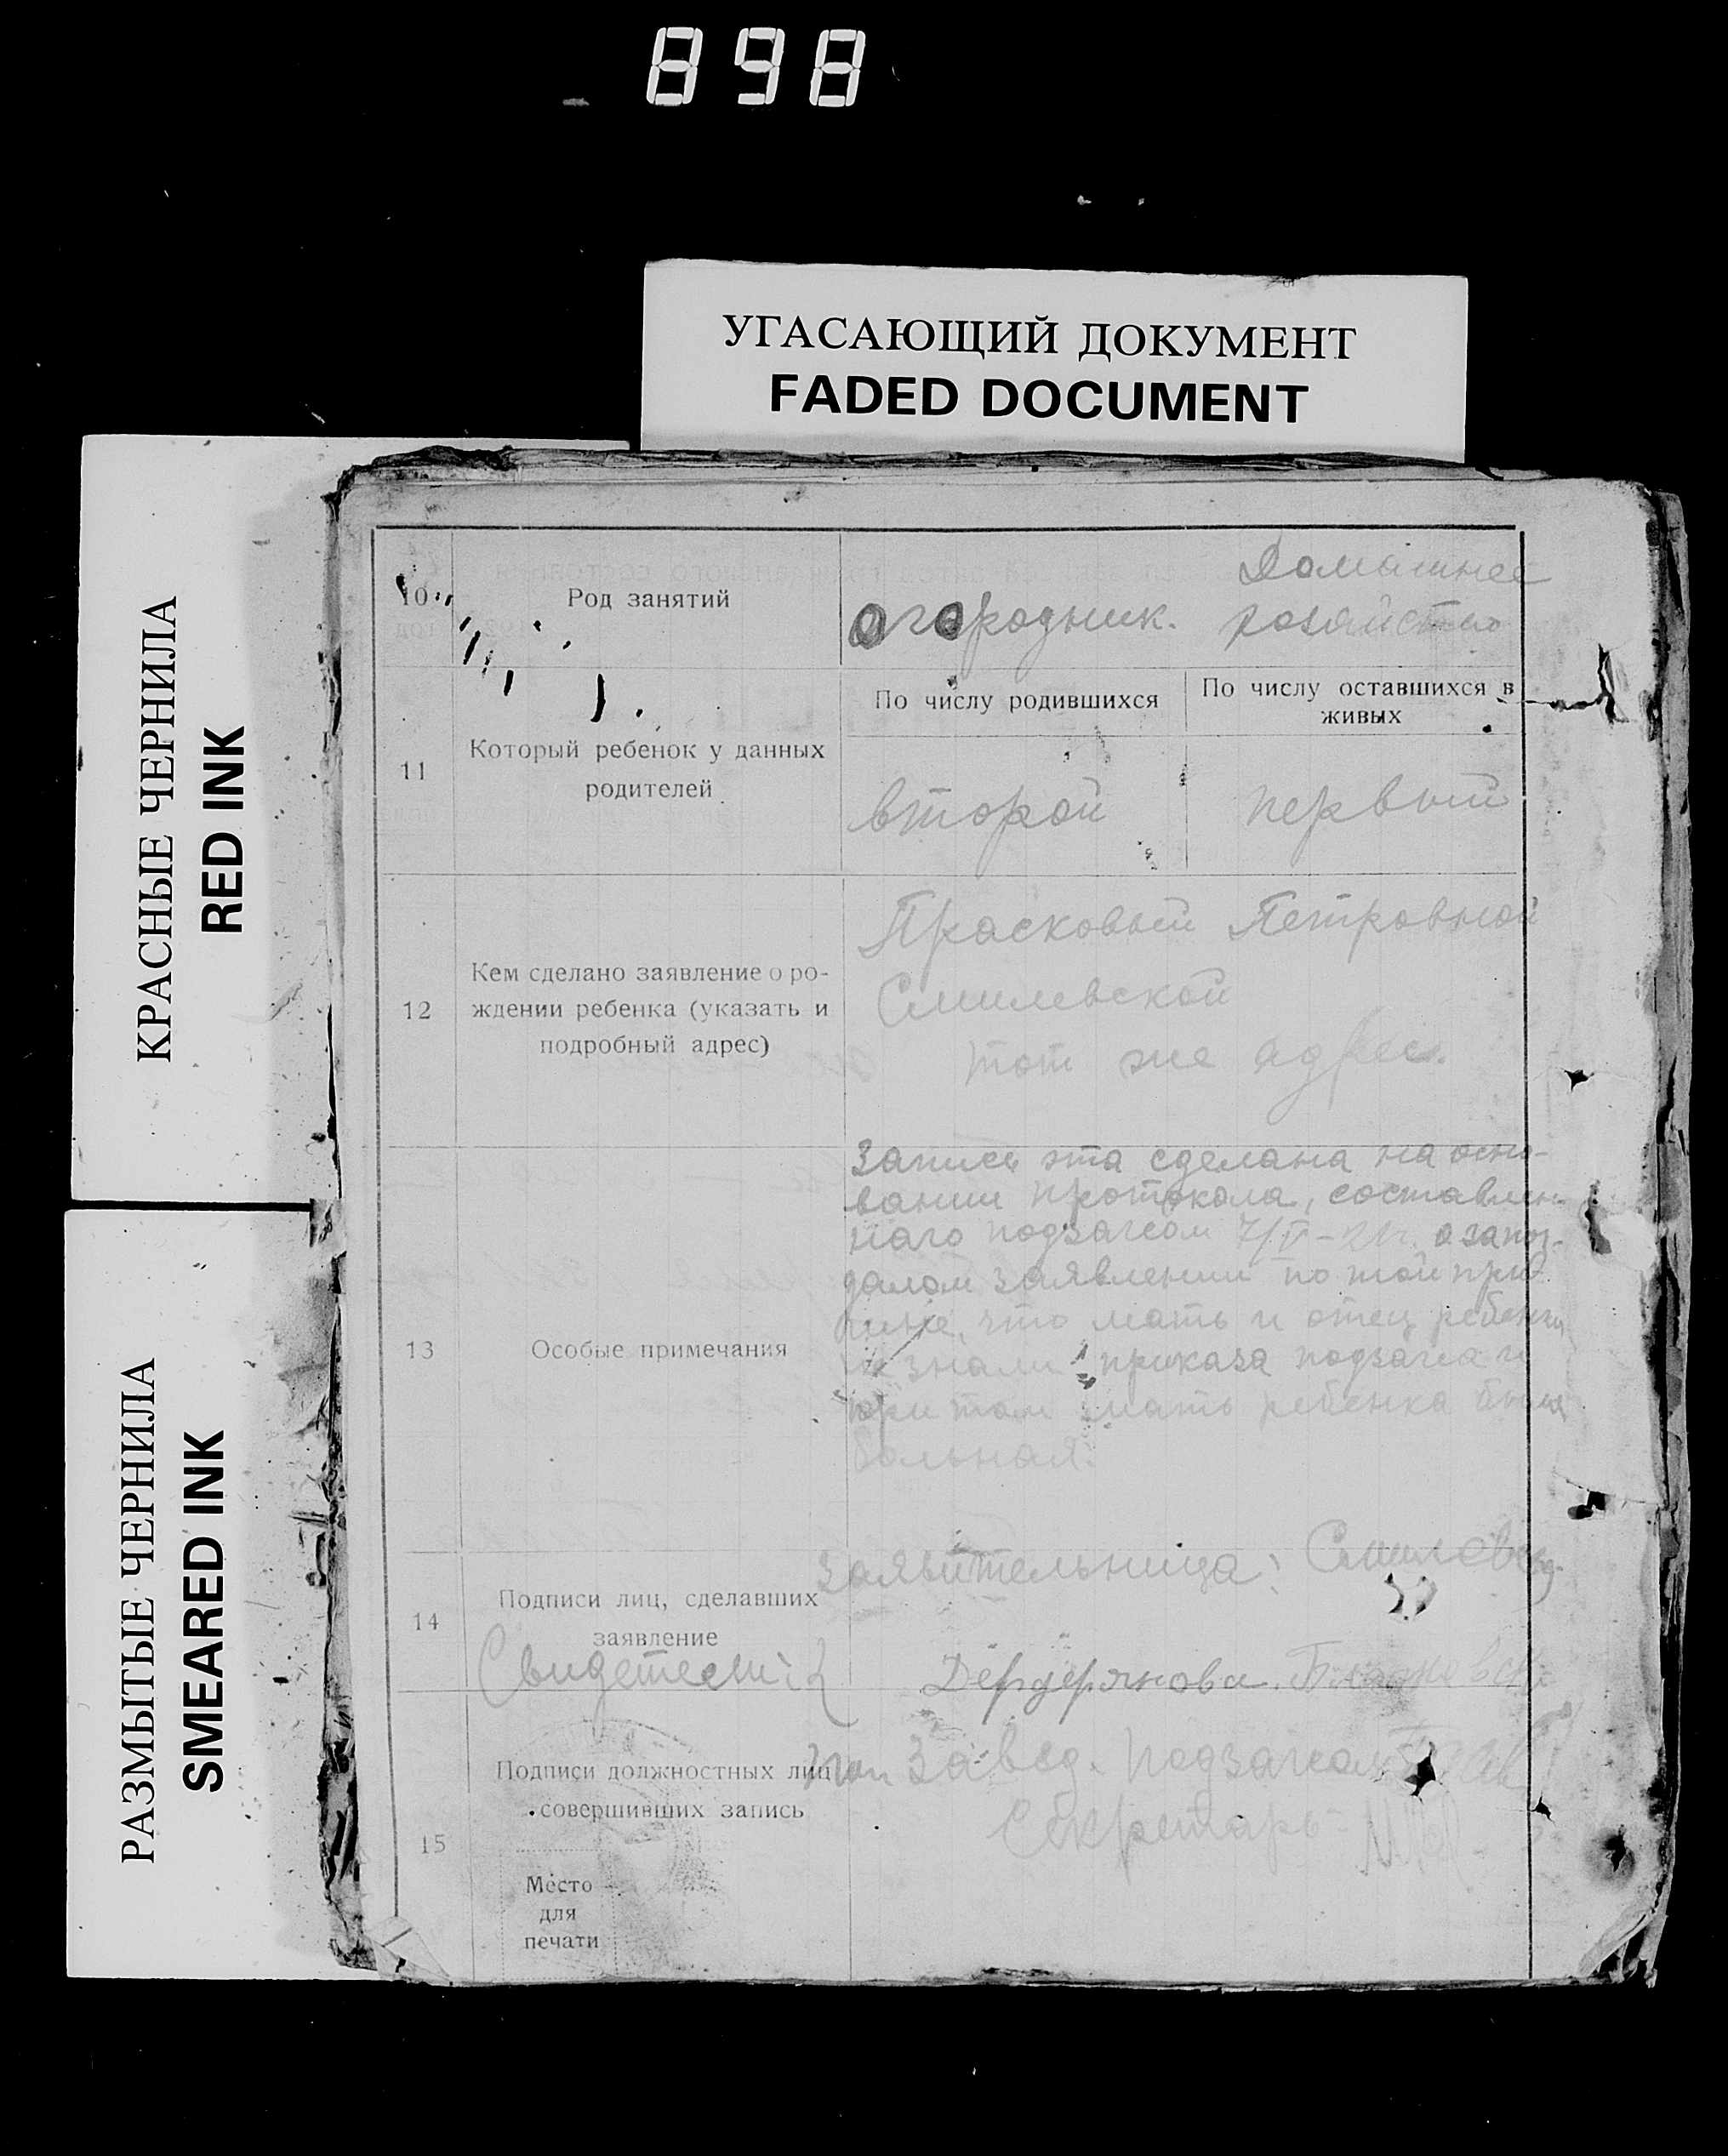 898
УГАСАЮЩИЙ ДОКУМЕНТ
FADED DOCUMENT
КРАСНЫЕ ЧЕРНИЛА
RED INK
РАЗМЫТЫЕ ЧЕРНИЛА
SMEARED INK
10
Род занятий
огородник.
Домашнее
хозяйство
11
Который ребенок у данных
родителей
По числу родившихся
По числу оставшихся в
живых
второй
первый
12
Кем сделано заявление о ро-
ждении ребенка (указать и
подробный адрес)
Прасковьей Петровной
Смилевской
тот же адрес.
13
Особые примечания
Запись эта сделана на осно-
вании протокола, составлен-
наго подзагсом о запоз-
далом заявлении по той при-
чине, что мать и отец ребенка
не знали приказа подзагса и
при том мать ребенка была
больная.
14
Подписи лиц, сделавших
заявление
заявительница: Смилевск
Свидетели
Дердерянова.
15
Подписи должностных лиц
совершивших запись
Завед. Подзагсом
Секретарь
Место
для
печати